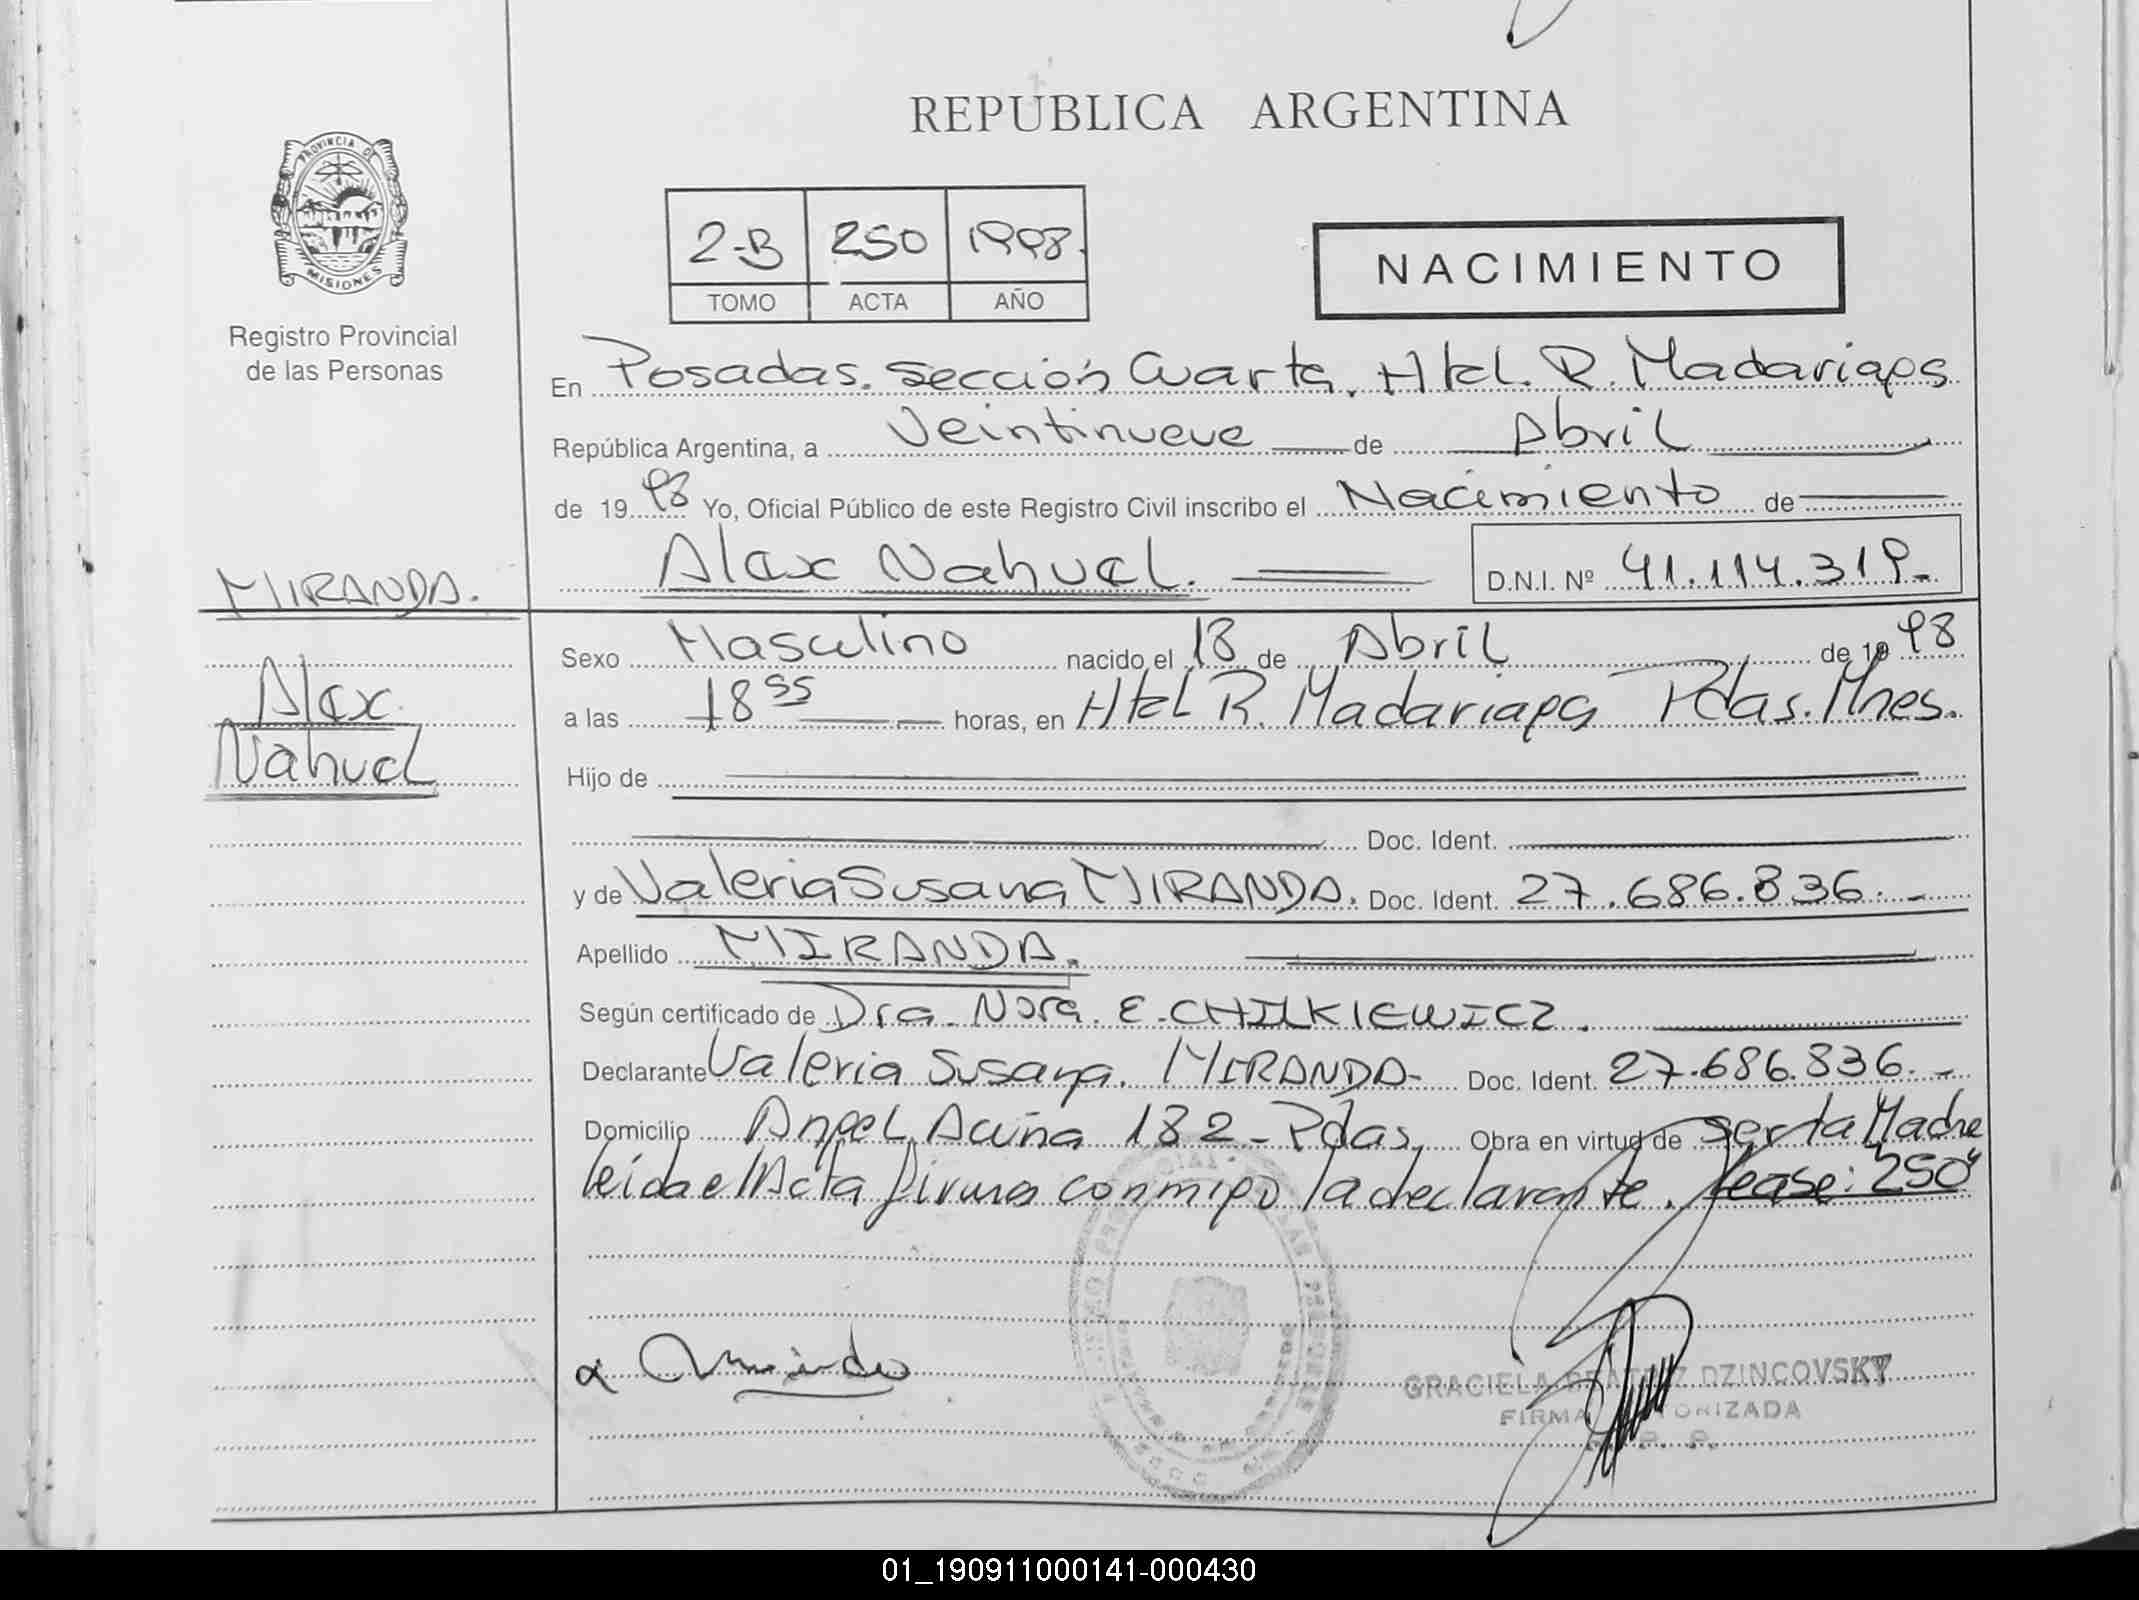 REPUBLICA ARGENTINA
PROVINCIA DE
MISIONES
Registro Provincial
de las Personas
2-B 250 1998.
TOMO ACTA AÑO
NACIMIENTO
En Posadas. Sección Cuarta. Htal. R. Madariaga
República Argentina, a Veintinueve de Abril
de 1998 Yo, Oficial Público de este Registro Civil inscribo el Nacimiento de
Alex Nahuel. D.N.I. Nº 41.114.319.-
MIRANDA.
Alex
Nahuel
Sexo Masculino nacido el 18 de Abril de 1998
a las 18 55 horas, en Htal R. Madariaga Pdas. Mnes.
Hijo de
Doc. Ident.
y de Valeria Susana MIRANDA. Doc. Ident. 27.686.836.-
Apellido MIRANDA.
Según certificado de Dra. Nora. E. CHILKIEWICZ.
Declarante Valeria Susana. MIRANDA- Doc. Ident. 27.686.836.-
Domicilio Angel Acuña 182- Pdas. Obra en virtud de ser la Madre
leída el Acta firma conmigo la declarante. lease: 250"
GRACIELA BEATRIZ DZINCOVSKY
FIRMA AUTORIZADA
01_190911000141-000430